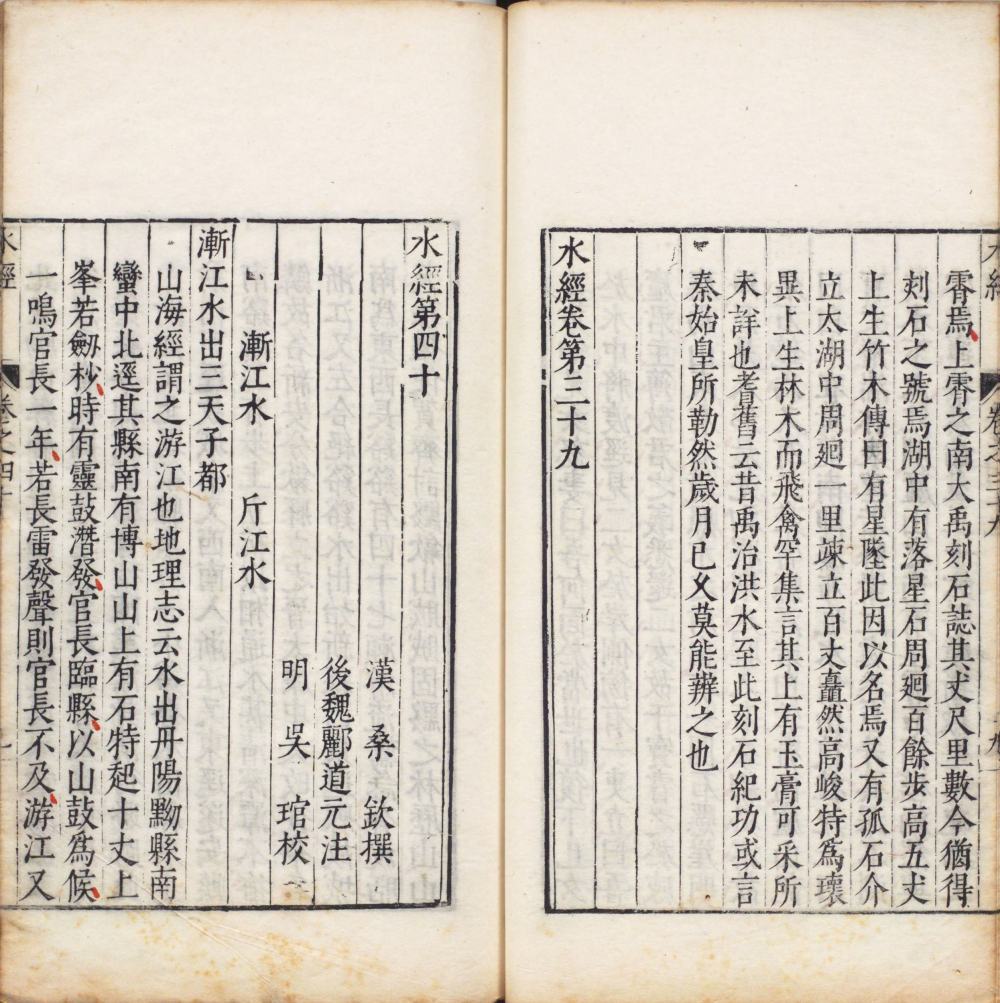 水經 卷之三十九 九
霄焉上霄之南大禹刻石誌其丈尺里數今猶得
刻石之號焉湖中有落星石周廻百餘步高五丈
上生竹木傳曰有星墜此因以名焉又有孤石介
立太湖中周廻一里竦立百丈矗然高峻特為瓌
異上生林木而飛禽罕集言其上有玉膏可采所
未詳也耆舊云昔禹治洪水至此刻石紀功或言
秦始皇所勒然歲月已乆莫能辨之也
水經卷第三十九
水經第四十
漢 桑 欽撰
後魏酈道元注
明 吳 琯校
漸江水 斤江水
漸江水出三天子都
山海經謂之浙江也地理志云水出丹陽黝縣南
蠻中北逕其縣南有博山山上有石特起十丈上
峯若劒杪時有靈鼓潛發官長臨縣以山鼓爲候
一鳴官長一年若長雷發聲則官長不及游江又
水經 卷之四十 一